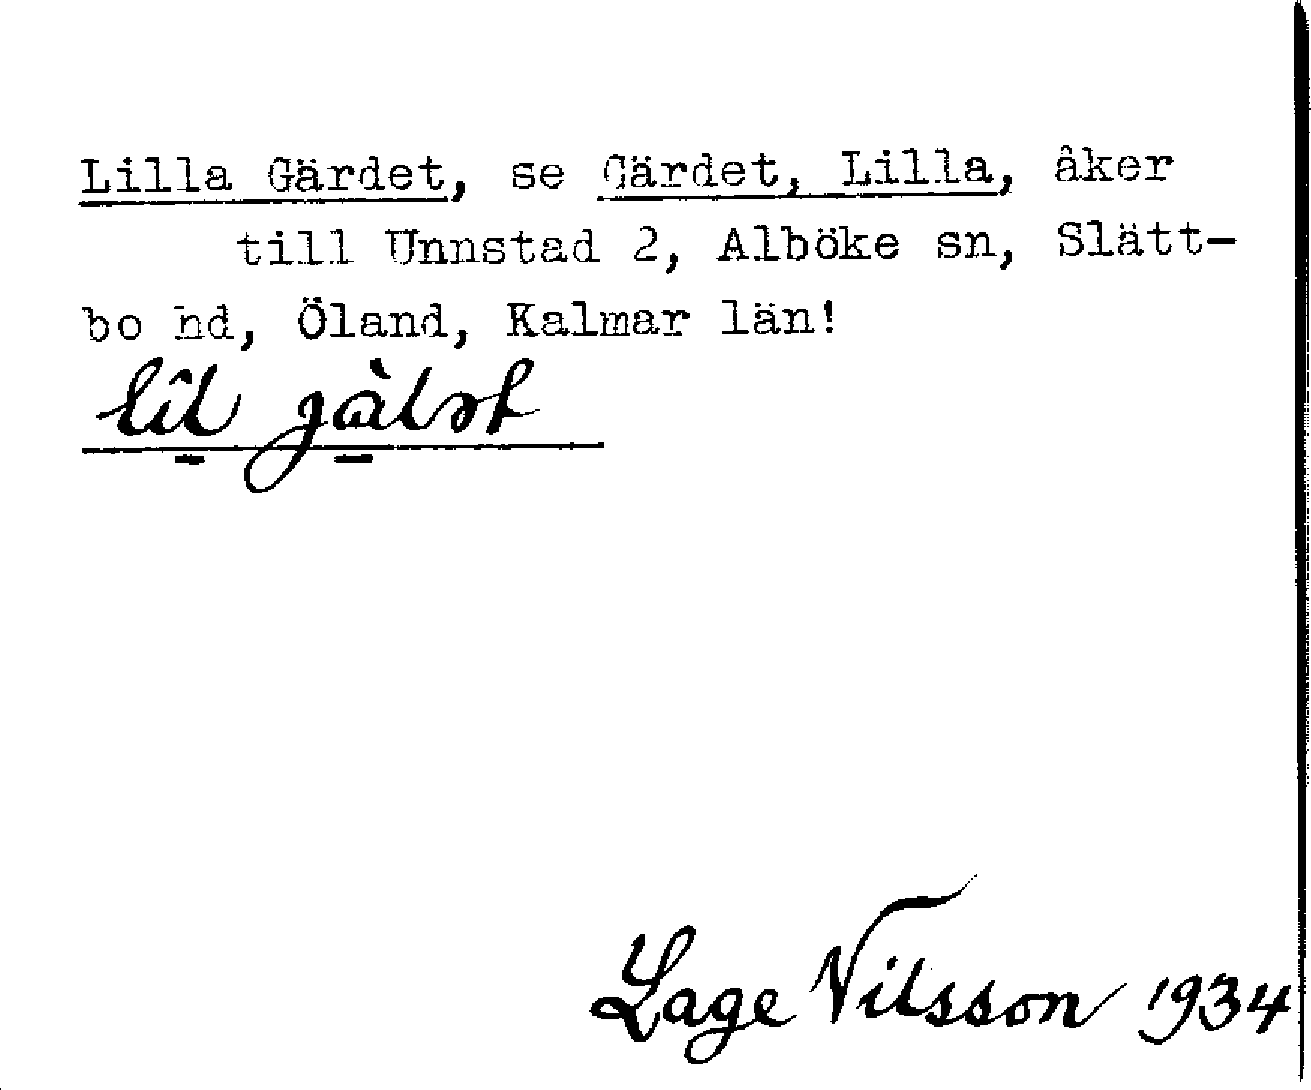 Lilla Gärdet, se Gärdet, Lilla, åker
till Unnstad 2, Alböke sn, Slätt-
bo hd, Öland, Kalmar län!
Lage Nilsson 1934